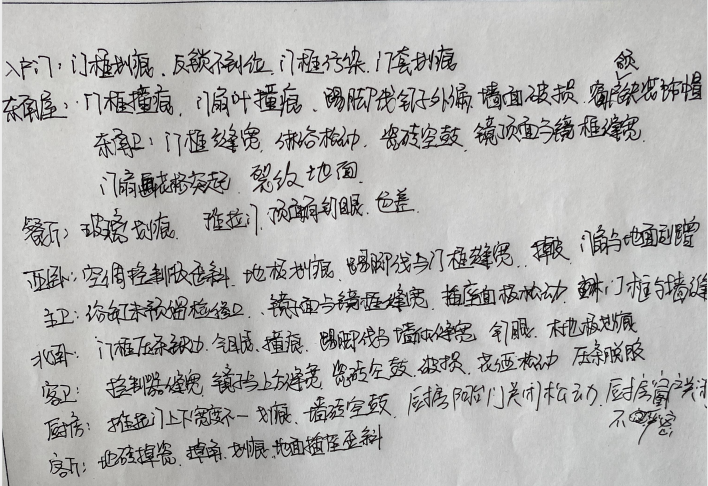 入户门：门框划痕、反锁不到位、门框污染、门套划痕
东南屋：门框撞痕、门扇叶撞痕、踢脚线钉子外漏、墙面破损、窗户缺装饰帽
东南卫：门框缝宽、淋浴松动、瓷砖空鼓、镜顶面与镜框缝宽、
门扇突起、裂纹地面
餐厅：玻璃划痕、推拉门、顶面有钉眼、色差
西卧：空调控制版歪斜、地板划痕、踢脚线与门框缝宽、掉皮、门扇与地面剐蹭
主卫：浴缸未预留检修口、镜面与镜框缝宽、插座面板松动、门框与墙缝
北卧：门框压条、撞痕、踢脚线与墙缝宽、钉眼、木地板划痕
客卫：控制器缝宽、镜子与上方缝宽、瓷砖空鼓、破损、花洒松动、压条脱胶
厨房：推拉门上下宽度不一、划痕、墙砖空鼓、厨房阳台门关闭松动、厨房窗户关闭
不严密
客厅：地砖掉瓷、掉角、划痕、地面插座歪斜